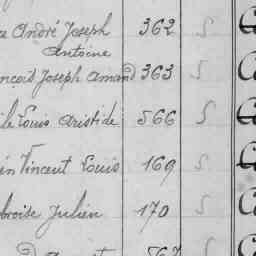 André Joseph 362 S
Antoine
ncois Joseph Amand 363 S
ile Louis Aristide 566 S
Vincent Louis 169 S
broise Julien 170 S